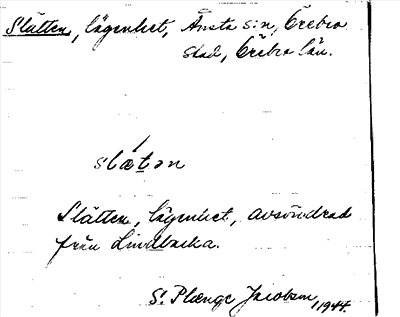 Slätten, lägenhet, Ånsta s:n, Örebro
stad, Örebro län.
slǽtən
Slätten, lägenhet, avsöndrad
från Lindbacka.
S. Plænge Jacobson 1944.